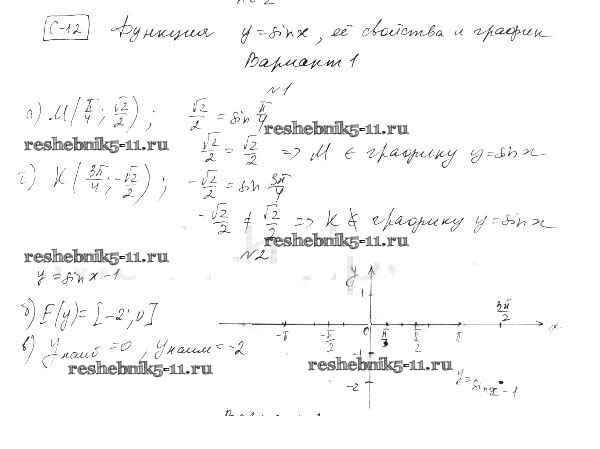 С-12 Функция y=sinx, её свойства и график
Вариант 1
№1
а) M(π/4; √2/2); √2/2 = sin π/4
reshebnik5-11.ru
reshebnik5-11.ru
√2/2 = √2/2 => M ∈ графику y=sinx
г) K(3π/4; -√2/2); -√2/2 = sin 3π/4
-√2/2 ≠ √2/2 => K ∉ графику y=sinx
reshebnik5-11.ru
reshebnik5-11.ru
№2
y=sinx-1
б) E(y)=[-2; 0]
в) yнаиб=0, yнаим=-2
reshebnik5-11.ru
y
1
-π -π/2 0 π/3 π/2 π 3π/2 x
-1
-2
reshebnik5-11.ru
y=sinx-1